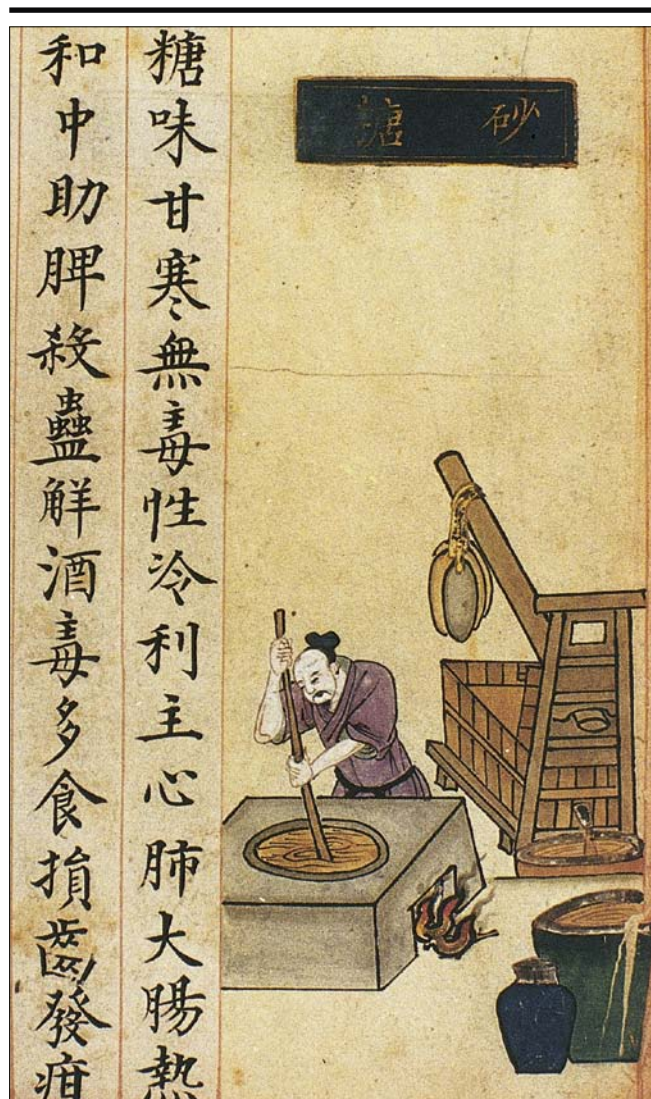 砂糖
糖味甘寒無毒性冷利主心肺大腸熱
和中助脾殺蠱觧酒毒多食損齒發疳